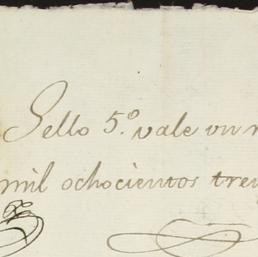 Sello 5.º vale un
mil ochocientos